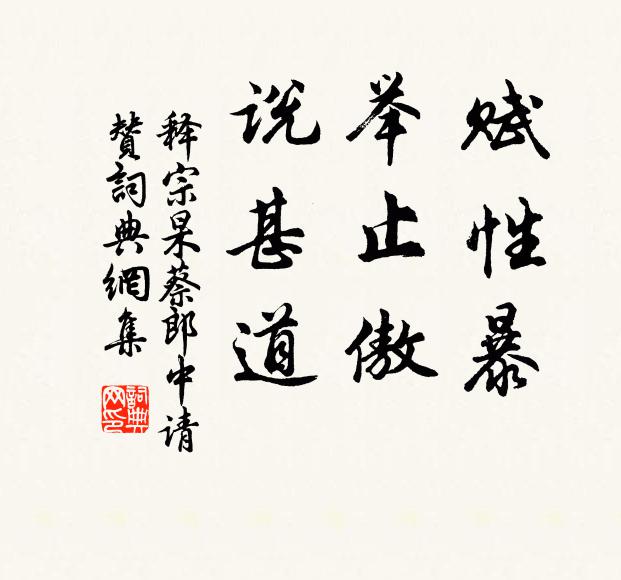 赋性暴
举止傲
说甚道
释宗杲蔡郎中请
赞詞典網集
詞典网印